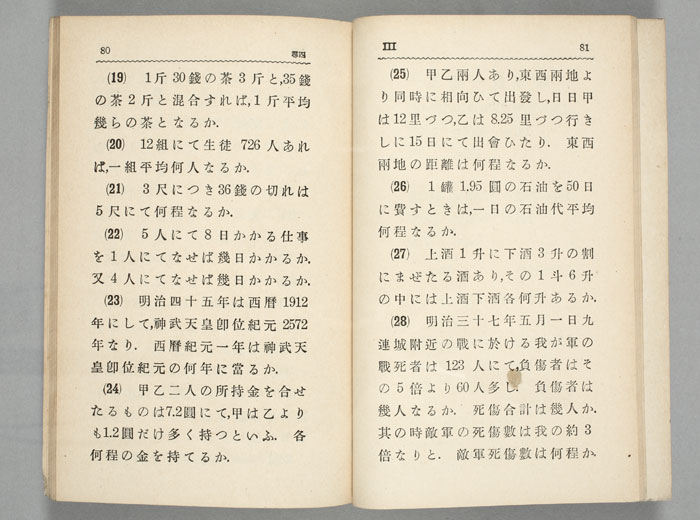 80 卷四
(19) 1斤30錢の茶3斤と,35錢
の茶2斤と混合すれば,1斤平均
幾らの茶となるか.
(20) 12組にて生徒726人あれ
ば,一組平均何人なるか.
(21) 3尺につき36錢の切れは
5尺にて何程なるか.
(22) 5人にて8日かかる仕事
を1人にてなせば幾日かかるか.
又4人にてなせば幾日かかるか.
(23) 明治四十五年は西曆1912
年にして,神武天皇卽位紀元2572
年なり. 西曆紀元一年は神武天
皇卽位紀元の何年に當るか.
(24) 甲乙二人の所持金を合せ
たるものは7.2圓にて,甲は乙より
も1.2圓だけ多く持つといふ. 各
何程の金を持てるか.
III 81
(25) 甲乙兩人あり,東西兩地よ
り同時に相向ひて出發し,日日甲
は12里づつ,乙は8.25里づつ行き
しに15日にて出會ひたり. 東西
兩地の距離は何程なるか.
(26) 1罐1.95圓の石油を50日
に費すときは,一日の石油代平均
何程なるか.
(27) 上酒1升に下酒3升の割
にまぜたる酒あり,その1斗6升
の中には上酒下酒各何升あるか.
(28) 明治三十七年五月一日九
連城附近の戰に於ける我が軍の
戰死者は123人にて,負傷者はそ
の5倍より60人多し. 負傷者は
幾人なるか. 死傷合計は幾人か.
其の時敵軍の死傷數は我の約3
倍なりと. 敵軍死傷數は何程か.